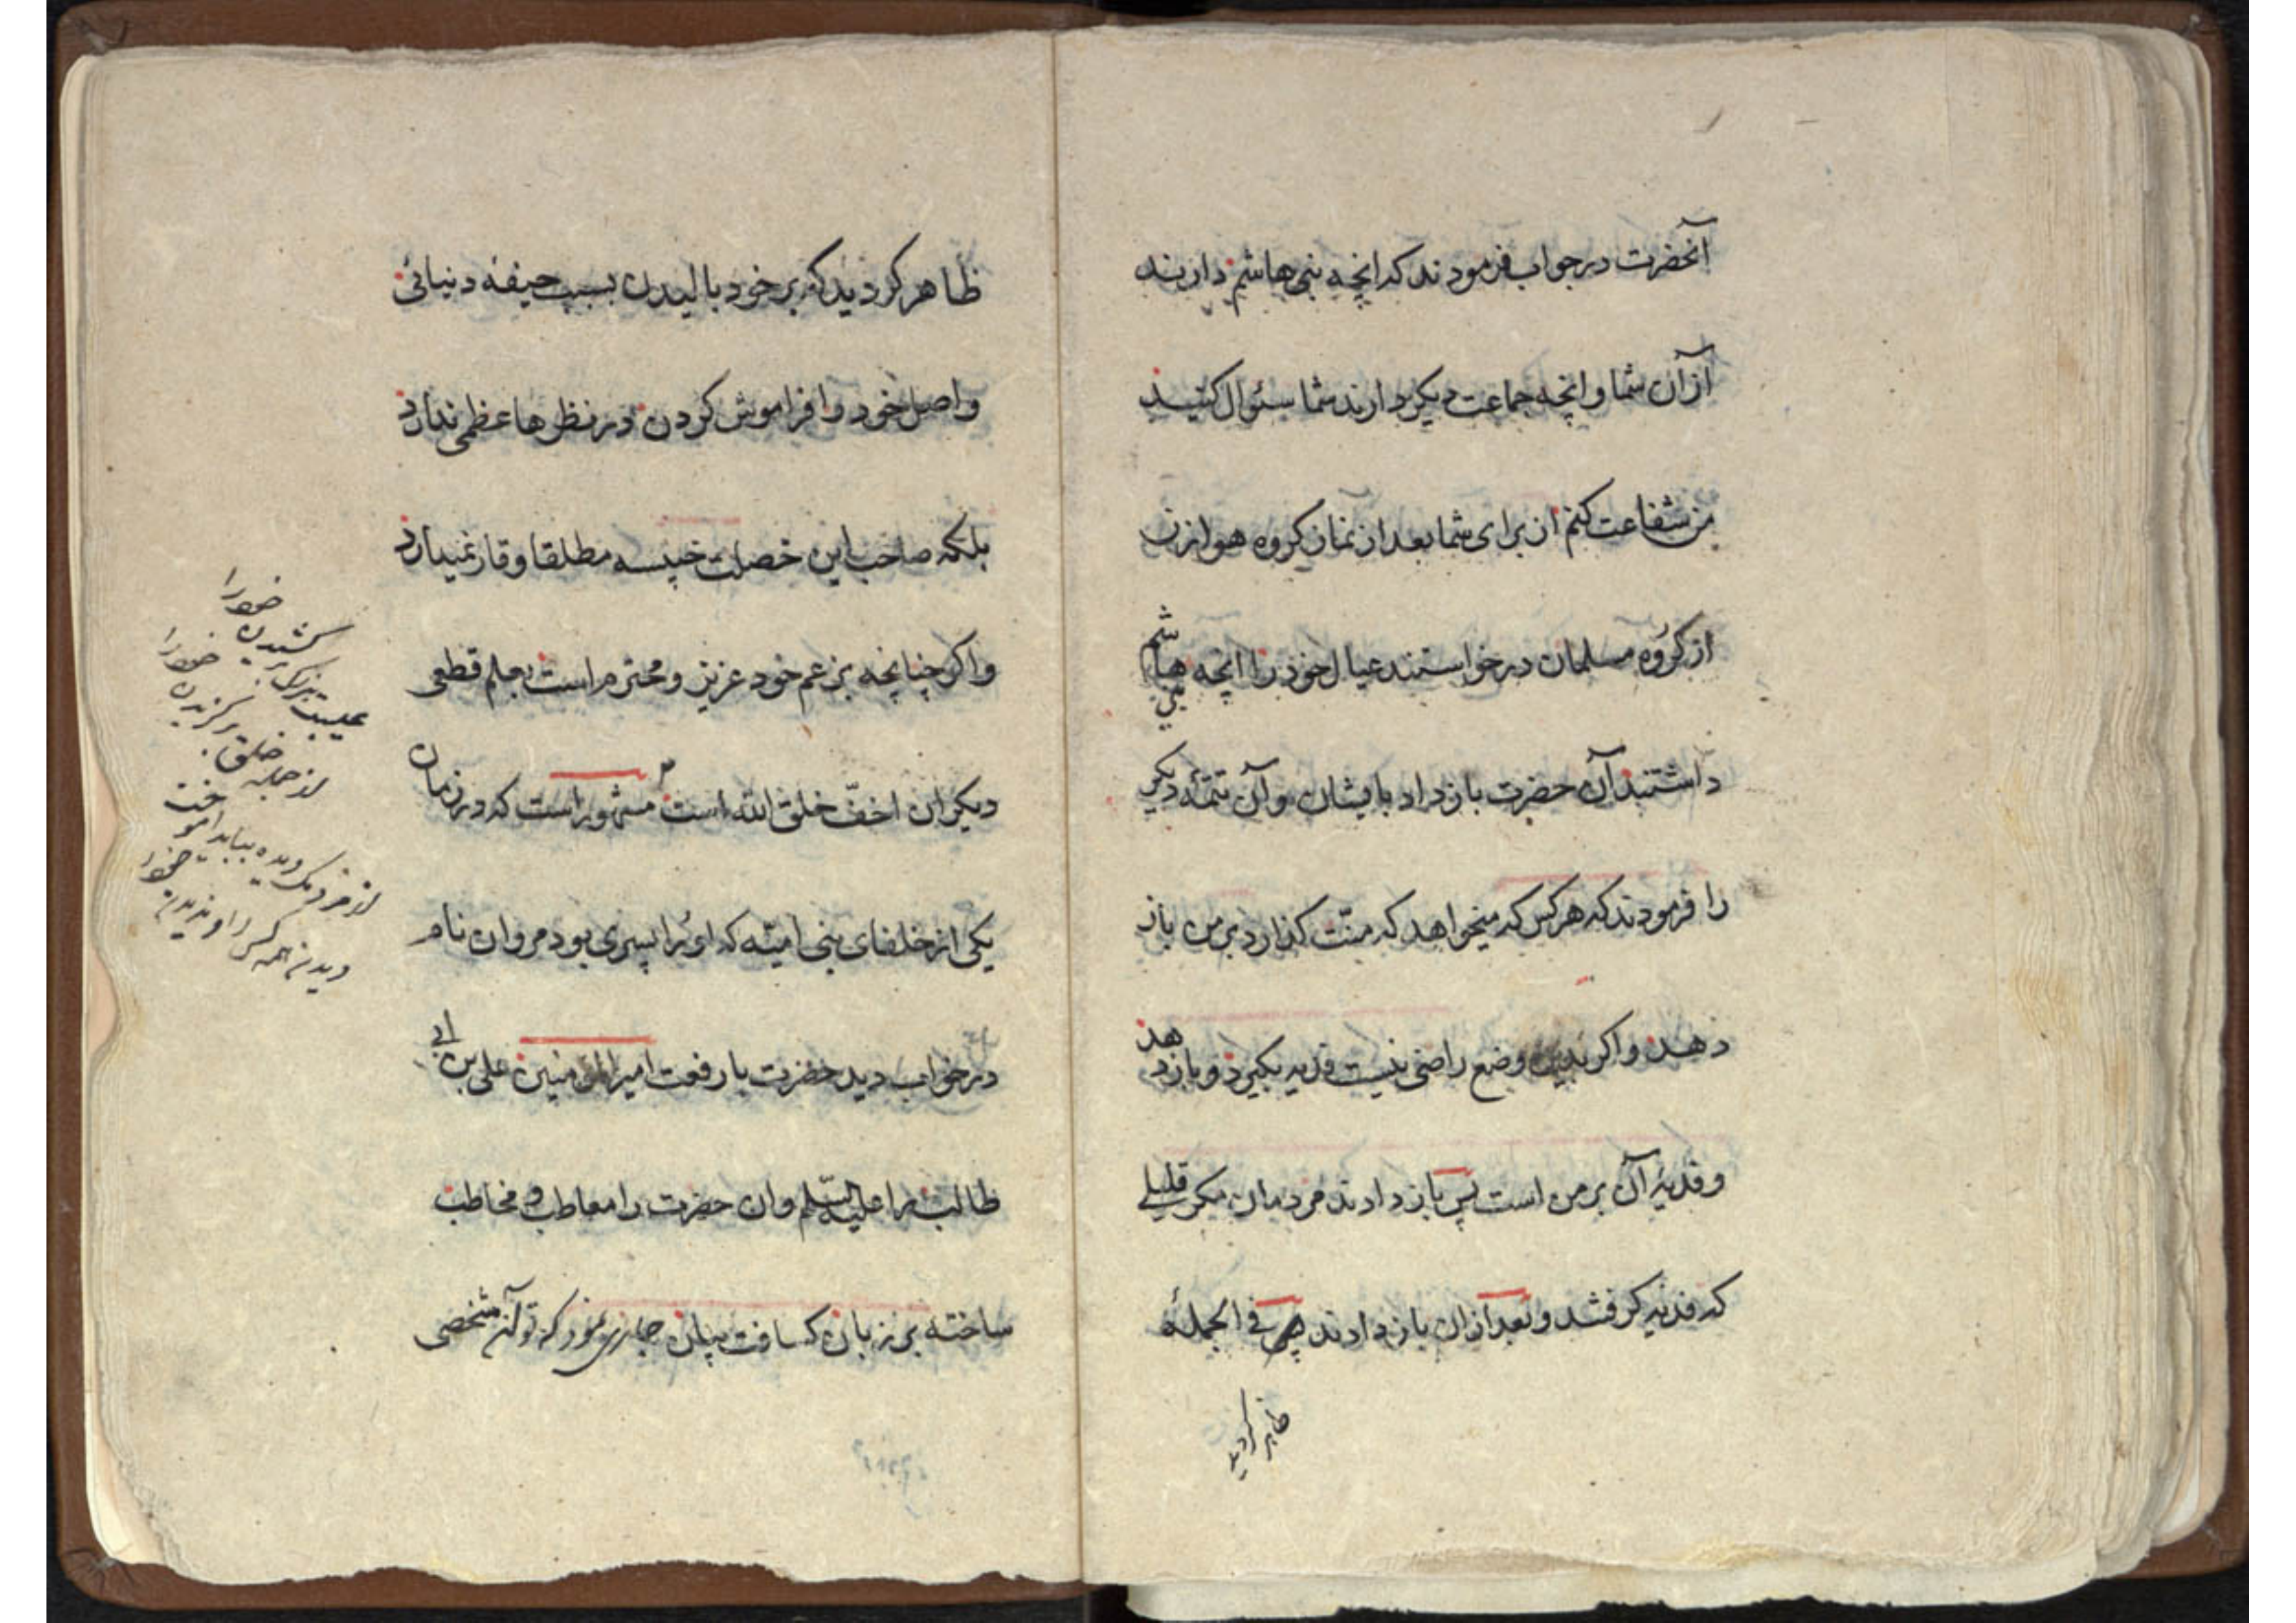 آنحضرت در جواب فرمودند که انچه بنی هاشم دارند
از آن شما و انچه جماعت دیکر دارند شما سئوال کنید
من شفاعت کنم ان برای شما بعد از نماز کروه هوازن
از کروه مسلمانان درخواستند عیال خود را انچه بنی هاشم
داشتند آن حضرت باز داد بایشان و آن تتمّهٔ دیکر
را فرمودند که هر کس که میخواهد که منّت کذارد بر من باز
دهد و اکر بدین وضع راضی نیست فدیه بکیرد و باز دهد
و فدیهٔ آن بر من است پس باز دادند مردمان مکر قلیلے
که فدیه کرفتند و بعد از ان باز دادند پس فی الجملهٔ
ظاهر کردید
ظاهر کردید که بر خود بالیدن بسبب جیفه دنیائی
و اصل خود را فراموش کردن در نظرها عظمی ندارد
بلکه صاحب این خصلت خسیسه مطلقا وقار نمیدارد
و اکر چنانچه بزعم خود عزیز و محترم است بعلم قطعی
دیکران اخفّ خلق الله است مشهور است که در زمان
یکی از خلفای بنی امیّه که او را پسری بود مروان نام
در خواب دید حضرت با رفعت امیر المؤمنین علی بن ابی
طالب را علیه السّلم و ان حضرت را معاطب و مخاطب
ساخته بر زبان کسافت بیان جاری نمود که تو آن شخصی
عیبست بزرک بر کشیدن خود را
از جمله خلق بر کزیدن خود را
از مردمک دیده بباید اموخت
دیدن همه کس را و ندیدن خود را